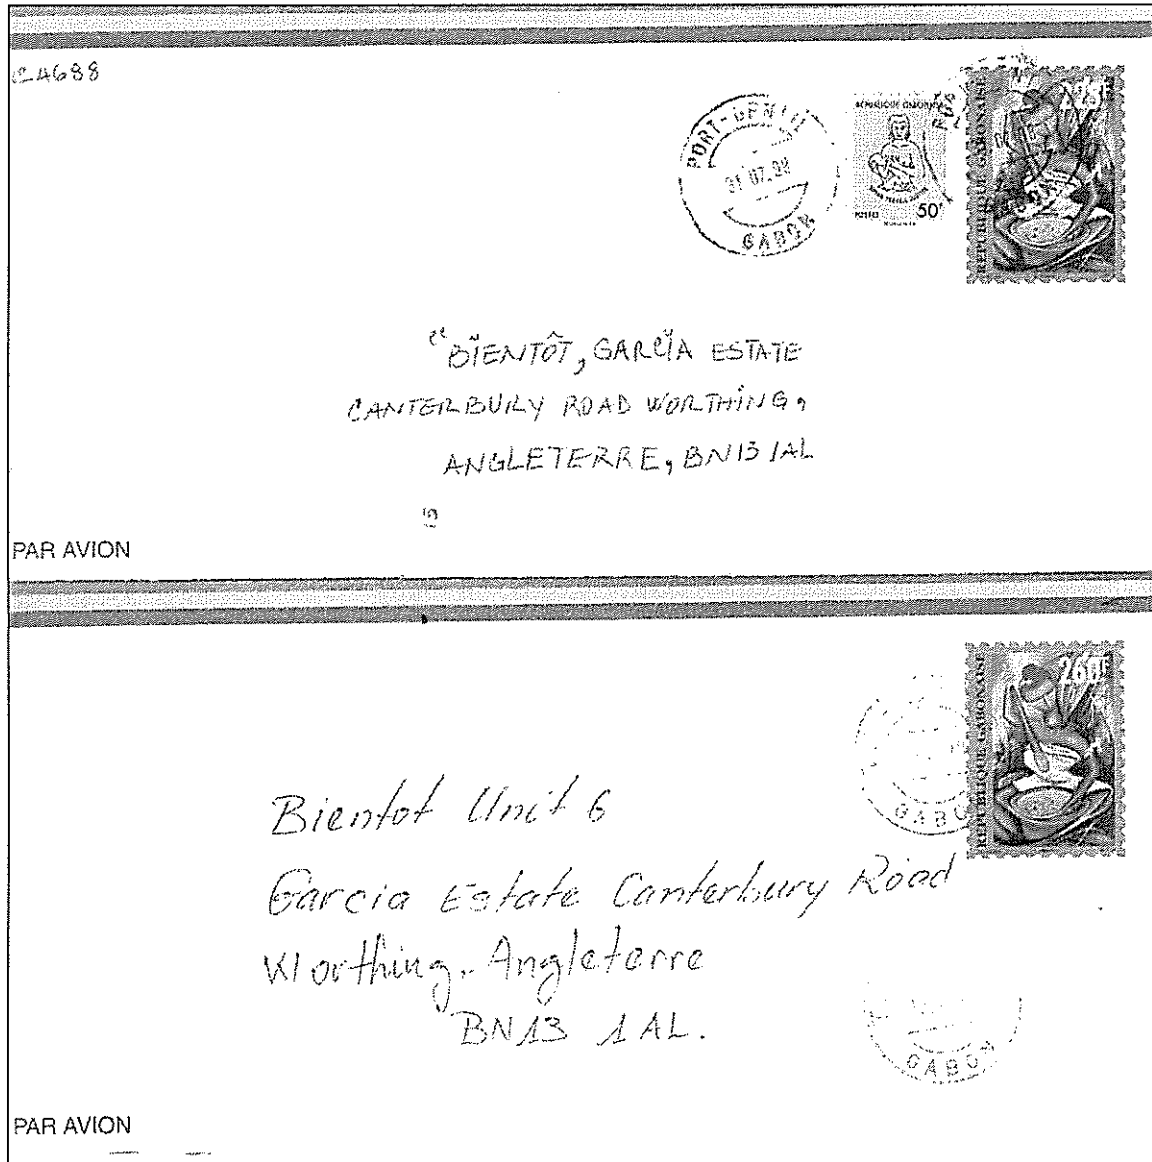 CA688
PORT-GENTIL
31 07.98
GABON
REPUBLIQUE GABONAISE
POSTES 50F
REPUBLIQUE GABONAISE
"BÏENTÔT, GARCÏA ESTATE
CANTERBURY ROAD WORTHING,
ANGLETERRE, BN13 1AL
PAR AVION
260F
REPUBLIQUE GABONAISE
GABON
Bientot Unit 6
Garcia Estate Canterbury Road
Worthing, Angleterre
BN13 1AL.
GABON
PAR AVION